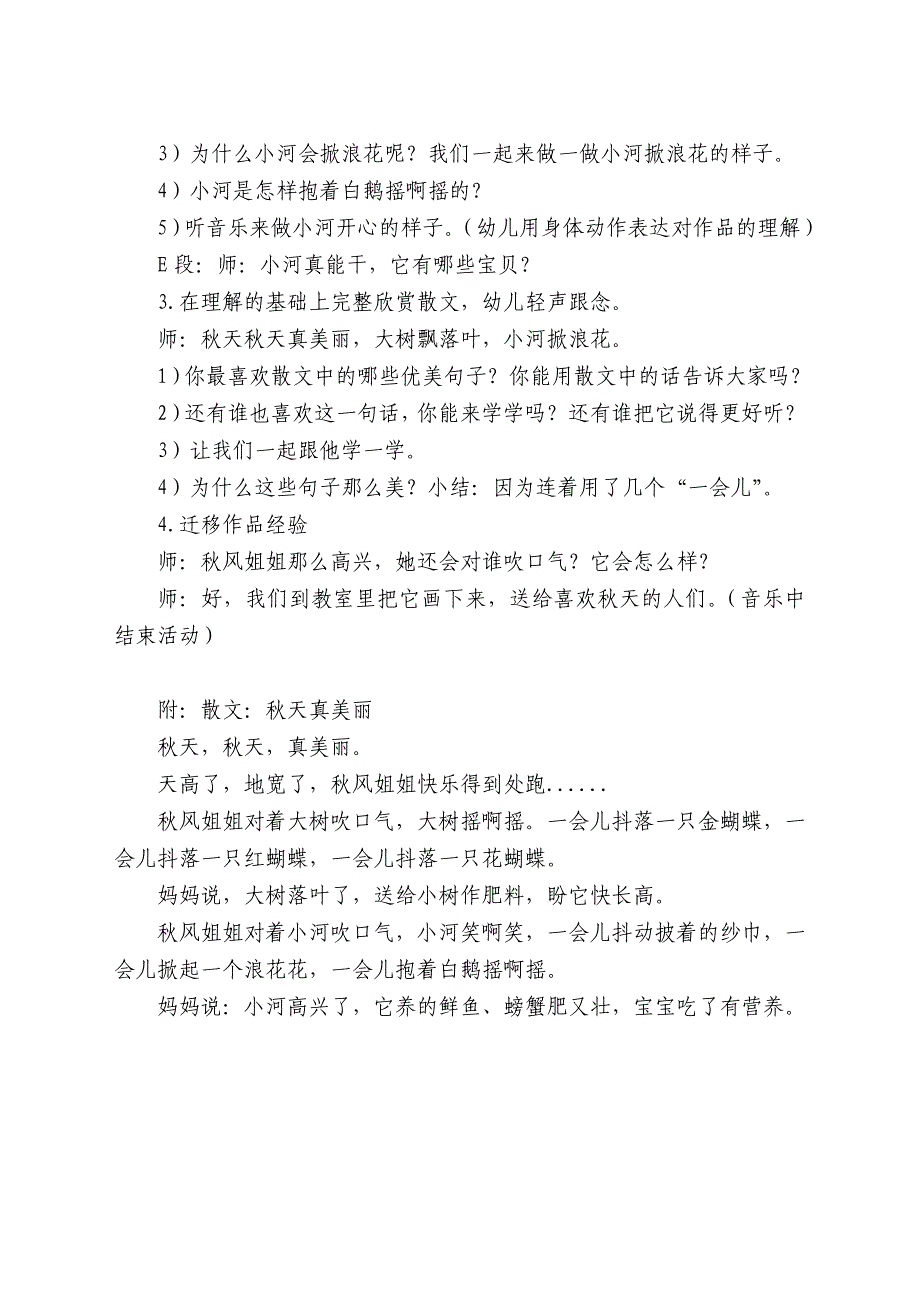 3）为什么小河会掀浪花呢？我们一起来做一做小河掀浪花的样子。
4）小河是怎样抱着白鹅摇啊摇的？
5）听音乐来做小河开心的样子。（幼儿用身体动作表达对作品的理解）
E段：师：小河真能干，它有哪些宝贝？
3.在理解的基础上完整欣赏散文，幼儿轻声跟念。
师：秋天秋天真美丽，大树飘落叶，小河掀浪花。
1）你最喜欢散文中的哪些优美句子？你能用散文中的话告诉大家吗？
2）还有谁也喜欢这一句话，你能来学学吗？还有谁把它说得更好听？
3）让我们一起跟他学一学。
4）为什么这些句子那么美？小结：因为连着用了几个“一会儿”。
4.迁移作品经验
师：秋风姐姐那么高兴，她还会对谁吹口气？它会怎么样？
师：好，我们到教室里把它画下来，送给喜欢秋天的人们。（音乐中
结束活动）
附：散文：秋天真美丽
秋天，秋天，真美丽。
天高了，地宽了，秋风姐姐快乐得到处跑......
秋风姐姐对着大树吹口气，大树摇啊摇。一会儿抖落一只金蝴蝶，一
会儿抖落一只红蝴蝶，一会儿抖落一只花蝴蝶。
妈妈说，大树落叶了，送给小树作肥料，盼它快长高。
秋风姐姐对着小河吹口气，小河笑啊笑，一会儿抖动披着的纱巾，一
会儿掀起一个浪花花，一会儿抱着白鹅摇啊摇。
妈妈说：小河高兴了，它养的鲜鱼、螃蟹肥又壮，宝宝吃了有营养。